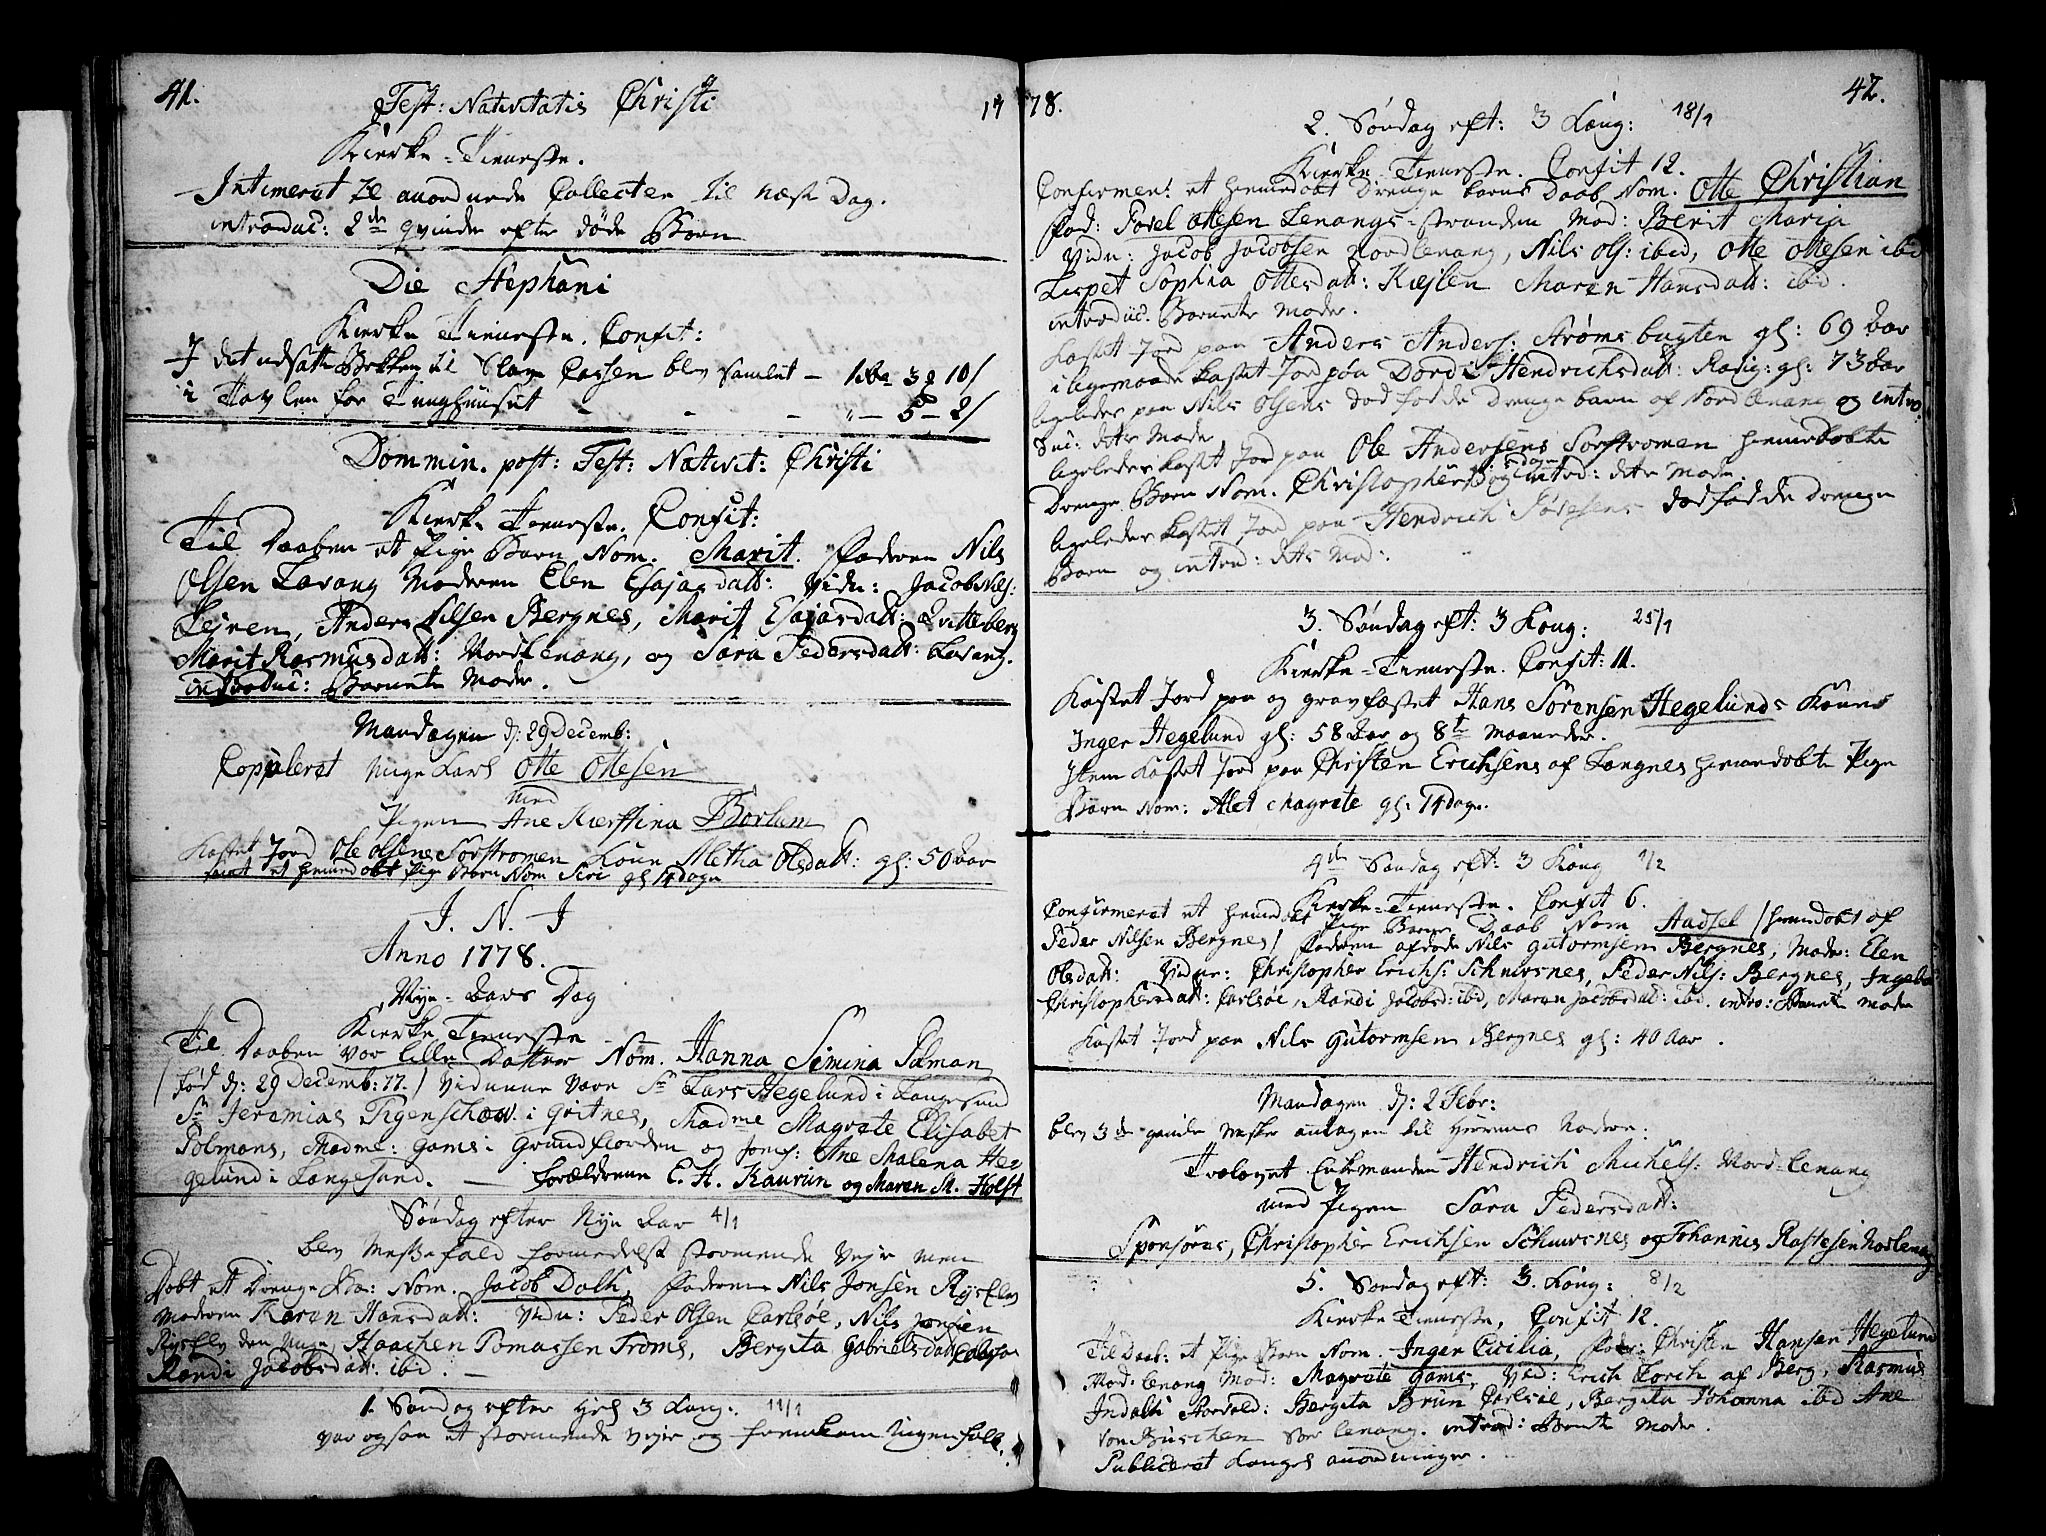 41.
Fest: Nativitatis Christi
17
Kierke-Tieneste.
Intimeret de anordnede Collecter til næste Dag.
introduc: 2de qvinder efter døde Børn
Die Stephani
Kierke Tieneste. Confit:
I det udsatte Bekken til Slave Cassen blev samlet – 1 3 10/
i Tavlen for Tugthuuset - - - 5 – 2/
Dommin. post: Fest: Nativit: Christi
Kierke Tieneste. Confit:
Til Daaben et Pige Barn Nom. Marit. Faderen Nils
Olsen Lavang Moderen Elen Esajasdatt: Vidn: Jacob Nils:
Lejren, Anders Nilsen Bergnes, Marit Esajasdatt: Qvitteberg
Marit Rasmusdatt: Nordlenang, og Sara Pedersdatt: Lavang.
introduc: Barnets Moder.
Mandagen d: 29 Decemb:
Copuleret unge Karl Otte Ottesen
med
Pigen Ane Kierstina Borlum
Kastet Jord Ole Olsens Sorstromen Kone Metha Olsdatt: gl: 50 Aar
samt et hiemedøbt Pige Barn Nom Siri gl 14 dage
I. N. J
Anno 1778.
Nyt-Aars Dag
Kierke Tieneste
Til Daaben vor lille Datter Nom. Hanna Simina Polman
/ fød d: 29 Decemb: 77. / Vidnerne vare Sr Lars Hegelund i Langesund
Sr Jeremias Figenschow i Goitnes, Madme Magrete Elisabet
Polmans, Madme: Gams i Grundfiorden og Jomf: Ane Malena He-
gelund i Langesund. — Forældrene E. H. Kaurin og Maren M. Holst
Søndag efter Nyt Aar 4/1
blev Messefald formedelst stormende Vejr men
Døbt et Drenge Ba: Nom. Jacob Dolk, Faderen Nils Jonsen Ryselv
Moderen Karen Hansdatt: Vidn: Peder Olsen Carlsøe, Nils Jonsen
Ryselv den unge, Haachen Tomassen Troms, Bergita Gabrielsdatt Carlsøe
Randi Jacobsdatt: ibid. —
1. Søndag efter Hel 3 Kong: 11/1
var ogsaa et stormende Vejr og fremkom ingen folk.
78.
42.
2. Søndag eft: 3 Kong: 18/1
Kierke-Tieneste. Confit 12.
Confirmert et hiemedøbt Drenge barns Daab Nom. Otte Christian
Fad: Povel Ottesen Lenangs-stranden Mod: Berit Maria
Vidn: Jacob Jacobsen Nordlenang, Nils Ols: ibid, Otte Ottesen ibid
Lispet Sophia Ottesdatt: Kieslen Maren Hansdatt: ibid.
introduc. Barnets Moder.
Kastet Jord paa Anders Anders: Strømsbugten gl: 69 Aar
i ligemaade kastet Jord paa Dordi Hendrichsdatt: gl: 73 Aar
ligeledes paa Nils Olsens dødfødde Drenge barn af Nordlenang og intro-
duc: dets Moder
ligeledes kastet Jord paa Ole Andersens Sorstromen hiemedøbte
Drenge Barn Nom. Christopher og introd: dets Moder
ligeledes kastet Jord paa Hendrich dødfødde Drenge
Barn og introd: dets Mod:.
3. Søndag eft: 3 Kong: 25/1
Kierke-Tieneste. Confit: 11.
Kastet Jord paa og gravfæstet Hans Sørensen Hegelunds Kone
Inger Hegelund gl: 58 Aar og 8te Maaneder.
Item kastet Jord paa Christen Erichsens af Langnes hiemedøbte Pige
Barn Nom: Alet Magrete gl: 14 dage.
4de Søndag eft: 3 Kong 1/2
Kierke-Tieneste. Confit 6.
Confirmeret et hiemdøbt Pige Barns Daab Nom Audsel / hiemdøbt af
Peder Nilsen Bergnes / Faderen afdøde Nils Gutormsen Bergnes, Moder: Elen
Olsdatt: Vidner: Christopher Erichs: Schuvsnes, Peder Nils: Bergnes, Ingeb:
Christophersdatt: Carlsøe, Randi Jacobsd: ibid, Maran Jacobsdat: ibid. intro: Barnets Moder
Kastet Jord paa Nils Gutormsen Bergnes gl: 40 Aar.
Mandagen d: 2 Febr:
blev 3de gamle Mesker antagen til Herrens Nadere:
Trolovet Enkemanden Hendrich Michels: Nord-Lenang
med Pigen Sara Pedersdatt:
Sponsores, Christopher Erichsen Schuvsnes og Johannis Rastesen Norlenang
5. Søndag eft: 3. Kong: 8/2
Kierke Tieneste, Confit 12.
Til Daab: et Pige Barn Nom. Inger Cicilia, Fader: Christen Hansen Hegelund
Nord: lenang Mod: Magrete Gams, Vid: Erich Lorch af Berg, Rasmus
Indalh: Bergita Brun Carlsøe, Bergita Johanna ibid Ane
von Büschen Sør lenang. introd: Barnets Moder.
Publiceret Konges anordninger.